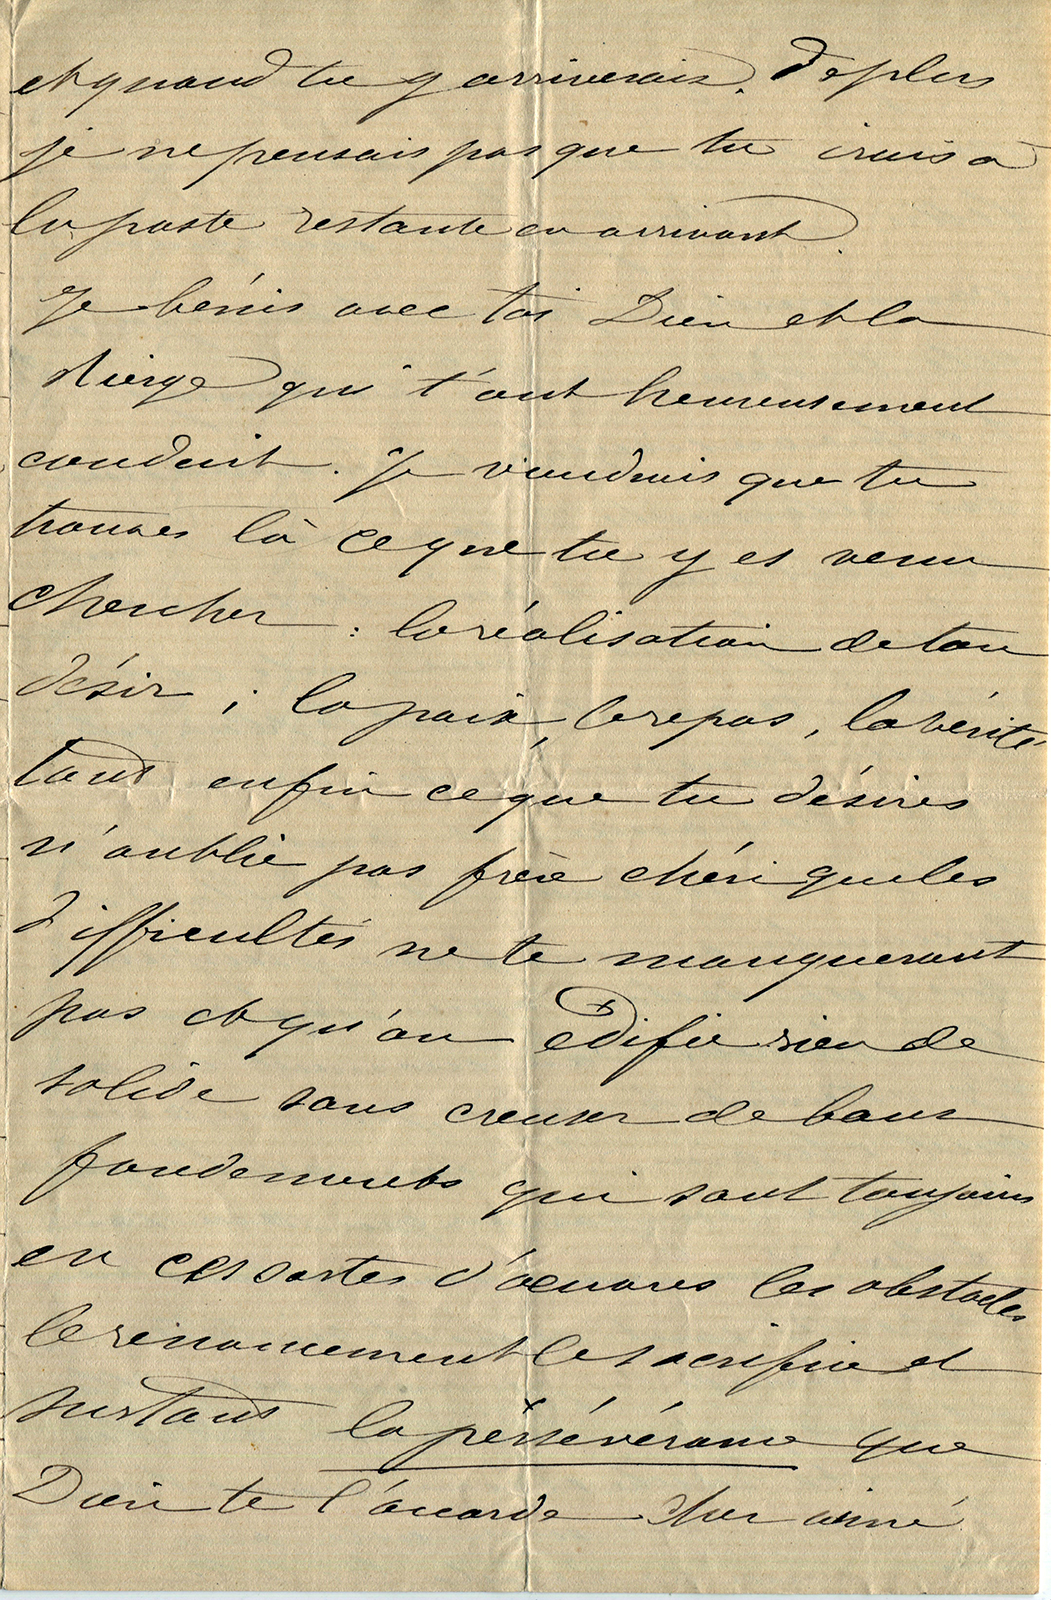 et quand tu y arriverais. De plus
je ne pensais pas que tu irais à
la poste restante en arrivant.
Je bénis avec toi Dieu et la
Vierge qui t'ont heureusement
conduit. Je voudrais que tu
trouves là ce que tu y es venu
chercher : la réalisation de ton
désir ; la paix, le repos, la vérité
tout enfin ce que tu désires
n'oublie pas frère chéri que les
difficultés ne te manqueront
pas et qu'on édifie rien de
solide sans creuser de bons
fondements qui sont toujours
en ces sortes d'oeuvres les obstacles
le renoncement le sacrifice et
surtout la persévérance que
Dieu te l'accorde cher aimé